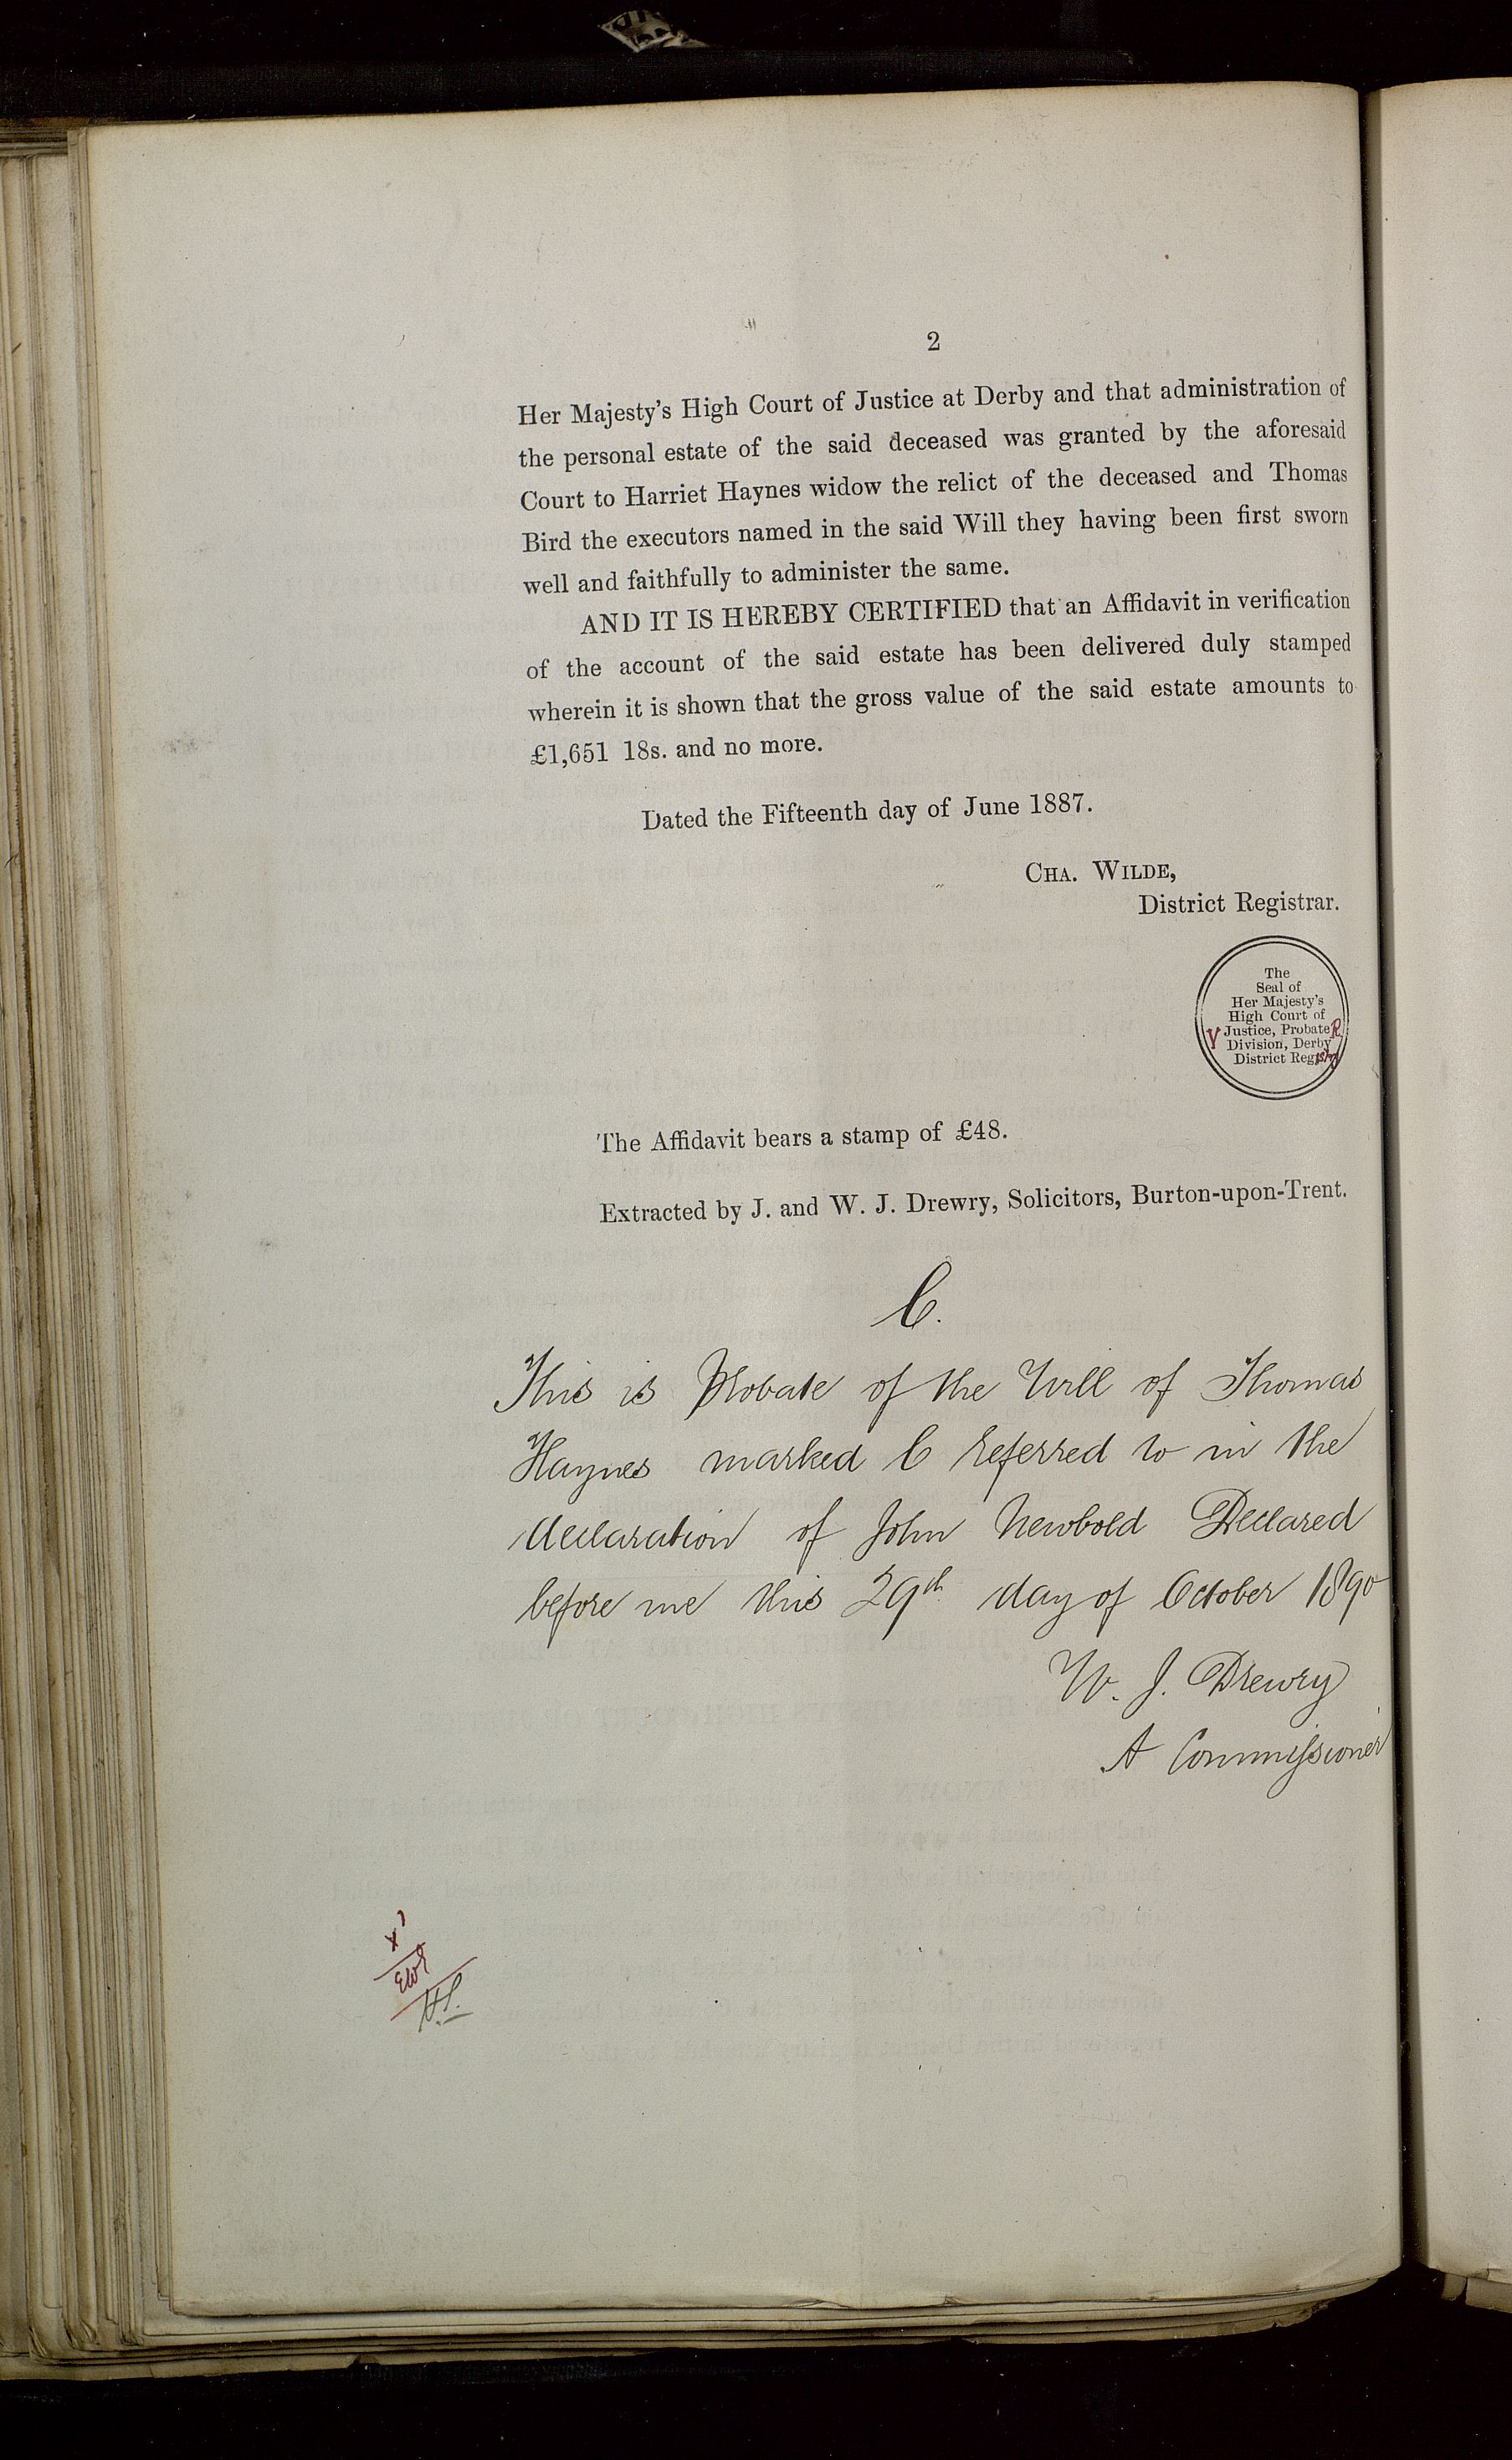 2
Her Majesty's High Court of Justice at Derby and that administration of
the personal estate of the said deceased was granted by the aforesaid
Court to Harriet Haynes widow the relict of the deceased and Thomas
Bird the executors named in the said Will they having been first sworn
well and faithfully to administer the same.
AND IT IS HEREBY CERTIFIED that an Affidavit in verification
of the account of the said estate has been delivered duly stamped
wherein it is shown that the gross value of the said estate amounts to
£1,651 18s. and no more.
Dated the Fifteenth day of June 1887.
CHA. WILDE,
District Registrar.
The
Seal of
Her Majesty's
High Court of
V Justice, Probate R
Division, Derby
District Registry
The Affidavit bears a stamp of £48.
Extracted by J. and W. J. Drewry, Solicitors, Burton-upon-Trent.
C.
This is Probate of the Will of Thomas
Haynes marked C referred to in the
declaration of John Newbold Declared
before me this 29th day of October 1890
W. J. Drewry
A Commissioner